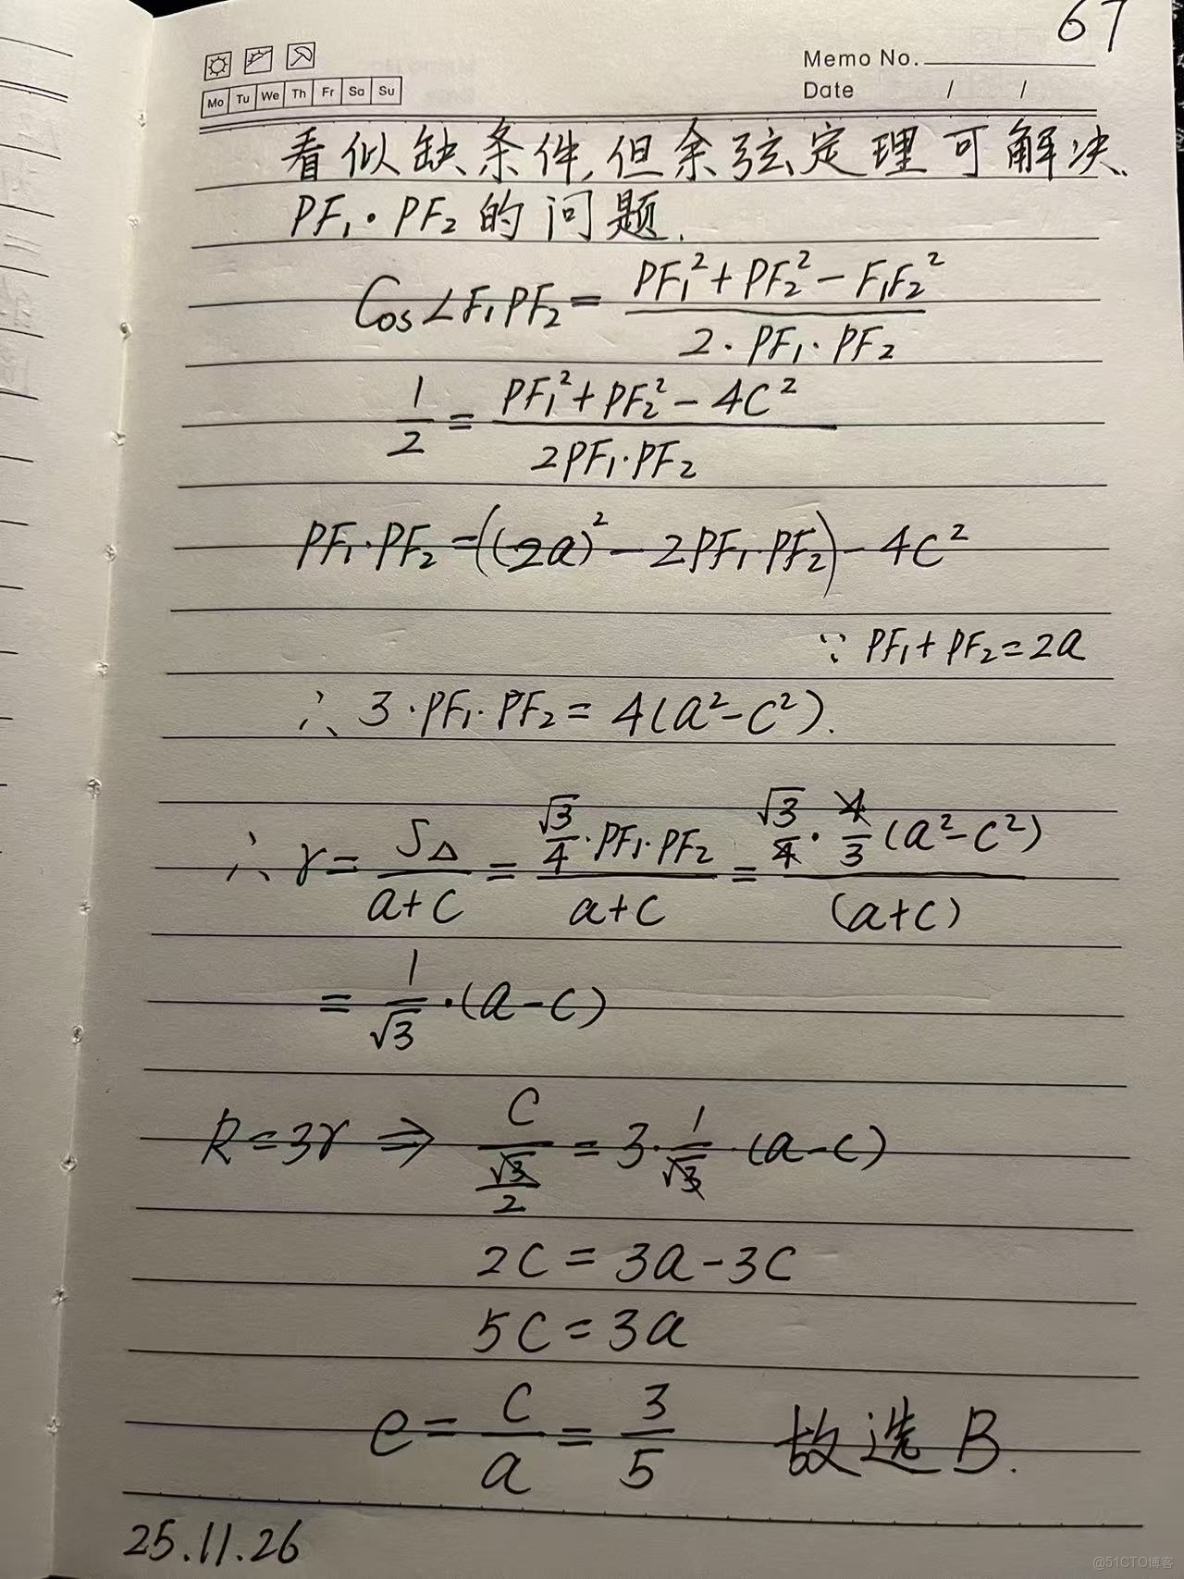 67
Memo No.
Mo Tu We Th Fr Sa Su
Date / /
看似缺条件,但余弦定理可解决.
PF₁·PF₂的问题.
Cos∠F₁PF₂ = (PF₁²+PF₂²-F₁F₂²)/(2·PF₁·PF₂)
1/2 = (PF₁²+PF₂²-4C²)/(2PF₁·PF₂)
PF₁·PF₂=((2a)²-2PF₁·PF₂)-4C²
∵ PF₁+PF₂=2a
∴ 3·PF₁·PF₂=4(a²-c²).
∴ r = S△/(a+c) = (√3/4·PF₁·PF₂)/(a+c) = (√3/4·4/3(a²-c²))/(a+c)
= 1/√3·(a-c)
R=3r ⇒ C/(√3/2) = 3·1/√3·(a-c)
2C=3a-3C
5C=3a
e = c/a = 3/5 故选B.
25.11.26
@51CTO博客